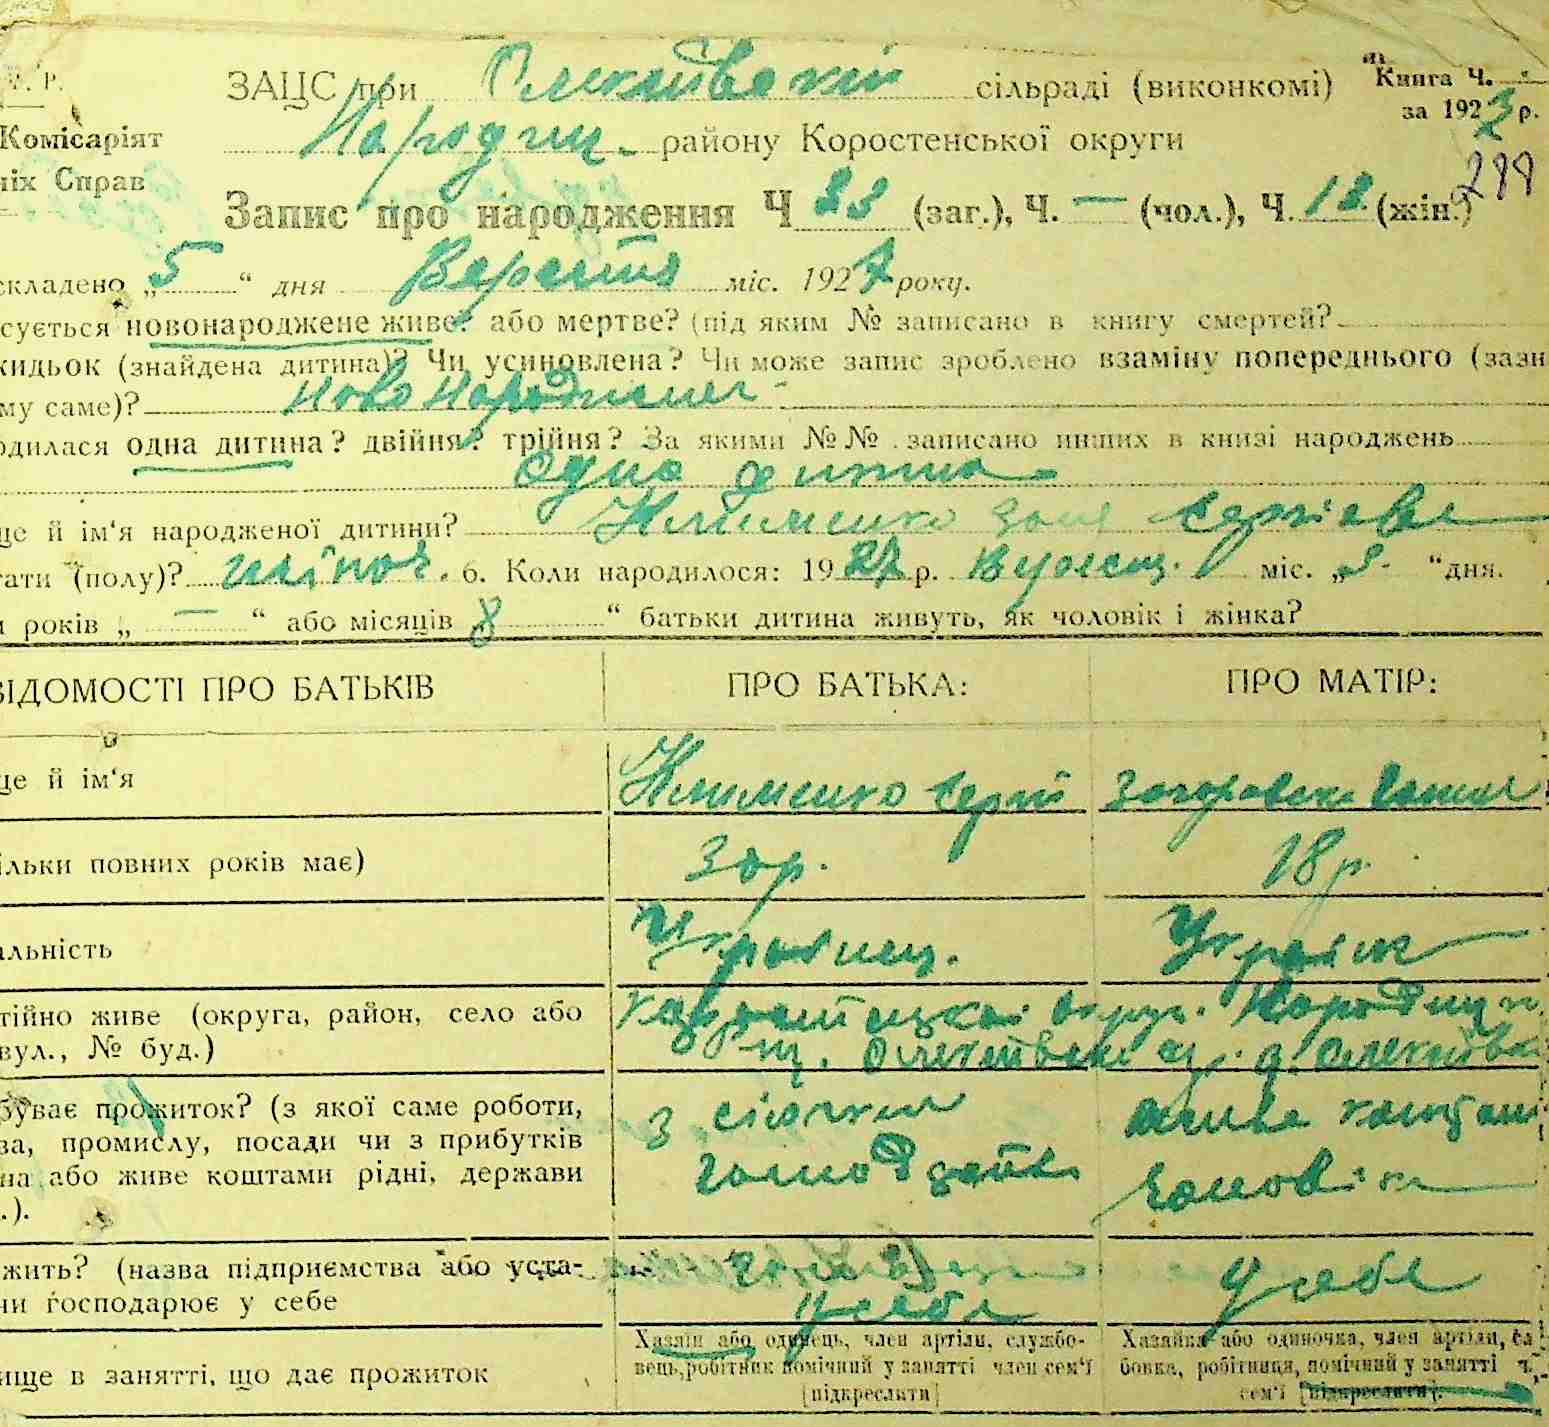 С. Р.
ЗАЦС при Олексіївській сільраді (виконкомі) Книга Ч.
Комісаріят Народиц. району Коростенської округи за 1927 р.
ніх Справ 299
Запис про народження Ч 33 (заг.), Ч. — (чол.), Ч. 18 (жін.)
складено „5“ дня Вересня міс. 1927 року.
сується новонароджене живе? або мертве? (під яким № записано в книгу смертей?
кидьок (знайдена дитина)? Чи усиновлена? Чи може запис зроблено взаміну попереднього (зазн
му саме)? Ново Народжена
одилася одна дитина? двійня? трійня? За якими №№ записано инших в книзі народжень
Одна дитина
ще й ім‘я народженої дитини? Клименко Зоня Сергієва
тати (полу)? жіноч. 6. Коли народилося: 1927 р. Вересн. міс. „5“ дня.
и років „—“ або місяців 8“ батьки дитина живуть, як чоловік і жінка?
ВІДОМОСТІ ПРО БАТЬКІВ ПРО БАТЬКА: ПРО МАТІР:
ще й ім‘я Клименко Сергій Загоровська
ільки повних років має) 30р. 18 р.
альність Українец. Україн
тійно живе (округа, район, село або округ. Народиц
вул., № буд.)
буває прожиток? (з якої саме роботи, з сільськ живе кошт
ва, промислу, посади чи з прибутків
на або живе коштами рідні, держави господарств чоловіка
.).
жить? (назва підприємства або уста- у себе
чи господарює у себе у себе
Хазяїн або одинець, член артіли, службо- Хазяйка або одиночка, член артіли, сл
ище в занятті, що дає прожиток вець, робітник помічний у занятті член сем‘ї бовка, робітниця, помічний у занятті ч.
[підкреслити] сем‘ї [підкреслити].